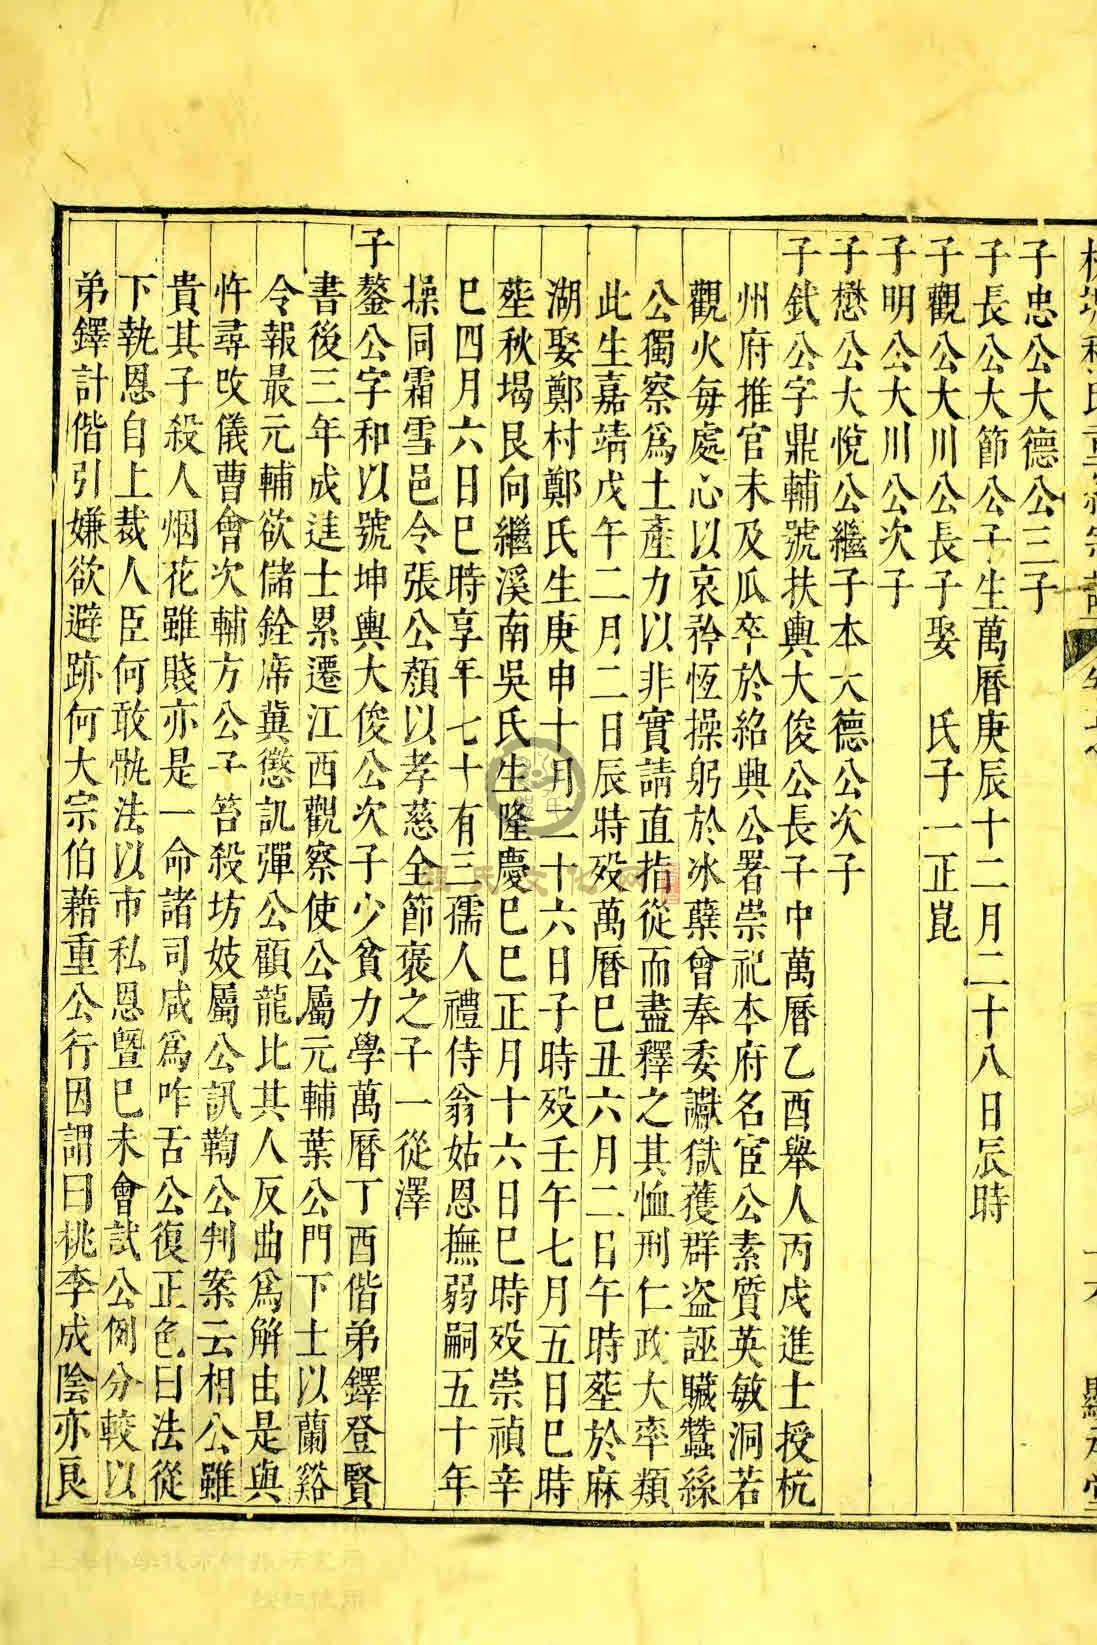 子忠公大德公三子
子長公大節公子生萬曆庚辰十二月二十八日辰時
子觀公大川公長子娶　氏子一正崑
子明公大川公次子
子懋公大悅公繼子本大德公次子
子釴公字鼎輔號扶輿大俊公長子中萬曆乙酉舉人丙戌進士授杭
州府推官未及瓜卒於紹興公署崇祀本府名宦公素質英敏洞若
觀火每處心以哀矜恆操躬於冰蘖曾奉委讞獄獲群盜誣贓蠶絲
公獨察爲土產力以非實請直指從而盡釋之其恤刑仁政大率類
此生嘉靖戊午二月二日辰時歿萬曆巳丑六月二日午時塟於麻
湖娶鄭村鄭氏生庚申十月二十六日子時歿壬午七月五日巳時
塟秋堨艮向繼溪南吳氏生隆慶巳巳正月十六日巳時歿崇禎辛
巳四月六日巳時享年七十有三孺人禮侍翁姑恩撫弱嗣五十年
操同霜雪邑令張公顏以孝慈全節褒之子一從澤
子鏊公字和以號坤輿大俊公次子少貧力學萬曆丁酉偕弟鐸登賢
書後三年成進士累遷江西觀察使公屬元輔葉公門下士以蘭谿
令報最元輔欲儲銓席冀懲訊彈公顧龍比其人反曲爲解由是與
忤尋改儀曹會次輔方公子笞殺坊妓屬公訊鞫公判案云相公雖
貴其子殺人烟花雖賤亦是一命諸司咸爲咋舌公復正色曰法從
下執恩自上裁人臣何敢骩法以市私恩曁巳未會試公例分較以
弟鐸計偕引嫌欲避跡何大宗伯藉重公行因謂曰桃李成陰亦良